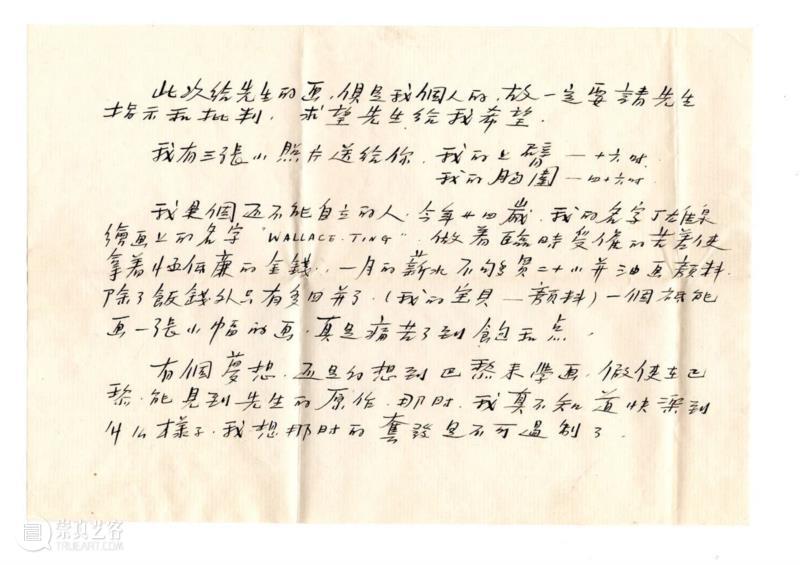 此次给先生的画,俱是我個人的,故一定要請先生
指示和批判,求望先生给我希望.
我有三張小照片送给你,我的上臂一十六吋.
我的胸圍一四十六吋.
我是個还不能自立的人,今年廿四歲,我的名字丁雄泉
繪画上的名字"WALLACE.TING".做着臨時受僱的苦差使
拿着低廉的金錢,一月的薪水不够買二十小并油画顔料.
除了飯錢外只有多四并了.(我的宝貝—顔料)一個祇能
画一張小幅的画,真是痛苦了到飽和点.
有個夢想,还是的想到巴黎来學画,假使在巴
黎,能見到先生的原作,那时,我真不知道快深到
什么樣子.我想那时的奮發是不可遏制了.
崇真艺客
TRUEART.COM